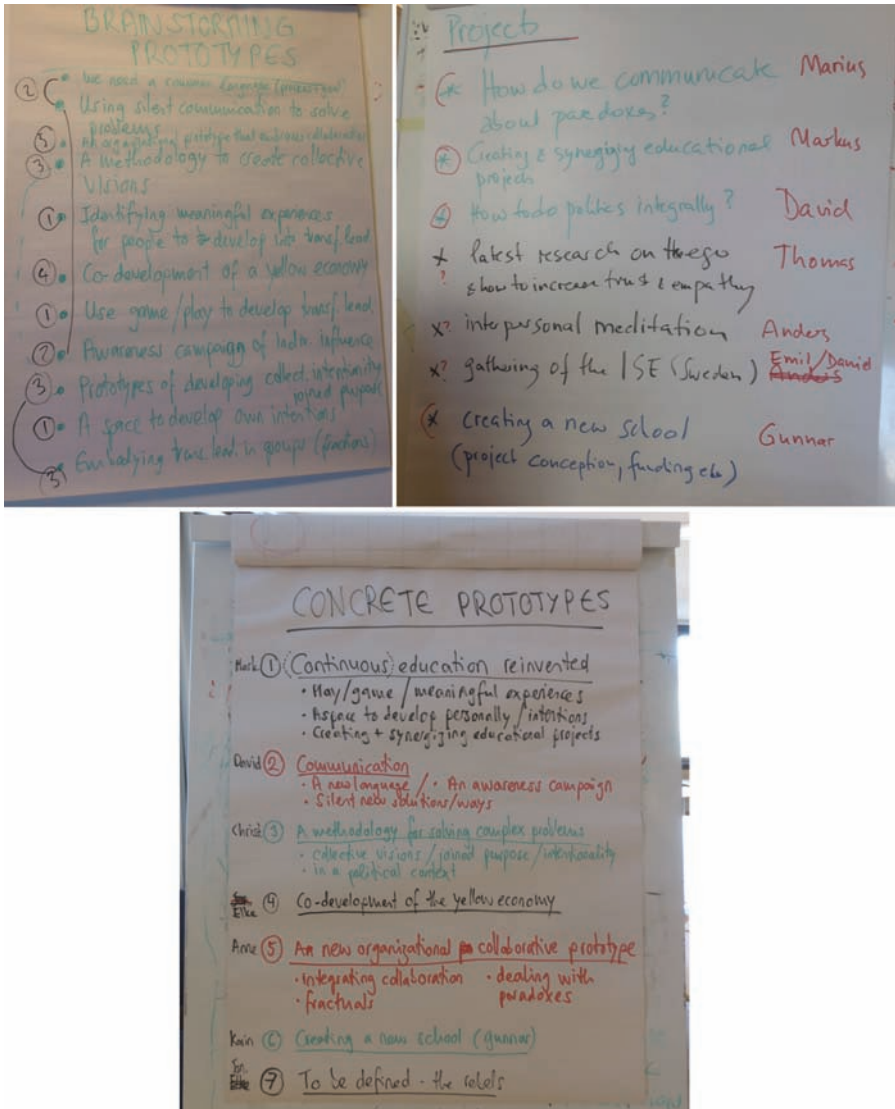 BRAINSTORMING
PROTOTYPES
② • We need a common language
• Using silent communication to solve
problems
⑤ • An organizational prototype that embraces collaboration
③ • A methodology to create collective
visions
① • Identifying meaningful experiences
for people to develop into transf. lead.
④ • Co-development of a yellow economy
① • Use game/play to develop transf. lead.
② • Awareness campaign of indiv. influence
③ • Prototypes of developing collect. intentionality
joined purpose
① • A space to develop own intentions
③ • Embodying trans. lead. in groups (fractions)
Projects
* How do we communicate Marius
about paradoxes?
* Creating & synergizing educational Markus
projects
* How to do politics integrally? David
x latest research on the ego Thomas
? & how to increase trust & empathy
x? interpersonal meditation Anders
x? gathering of the ISE (Sweden) Emil/David
Anders
* creating a new school Gunnar
(project conception, funding etc)
CONCRETE PROTOTYPES
Mark ① (Continuous) education reinvented
• Play/game/meaningful experiences
• A space to develop personally/intentions
• Creating + synergizing educational projects
David ② Communication
• A new language / • An awareness campaign
• Silent new solutions/ways
Christ ③ A methodology for solving complex problems
• collective visions/joined purpose/intentionality
• in a political context
Elke ④ Co-development of the yellow economy
Anne ⑤ An new organizational collaborative prototype
• integrating collaboration • dealing with
• fractuals paradoxes
⑥ Creating a new school (gunnar)
⑦ To be defined - the rebels